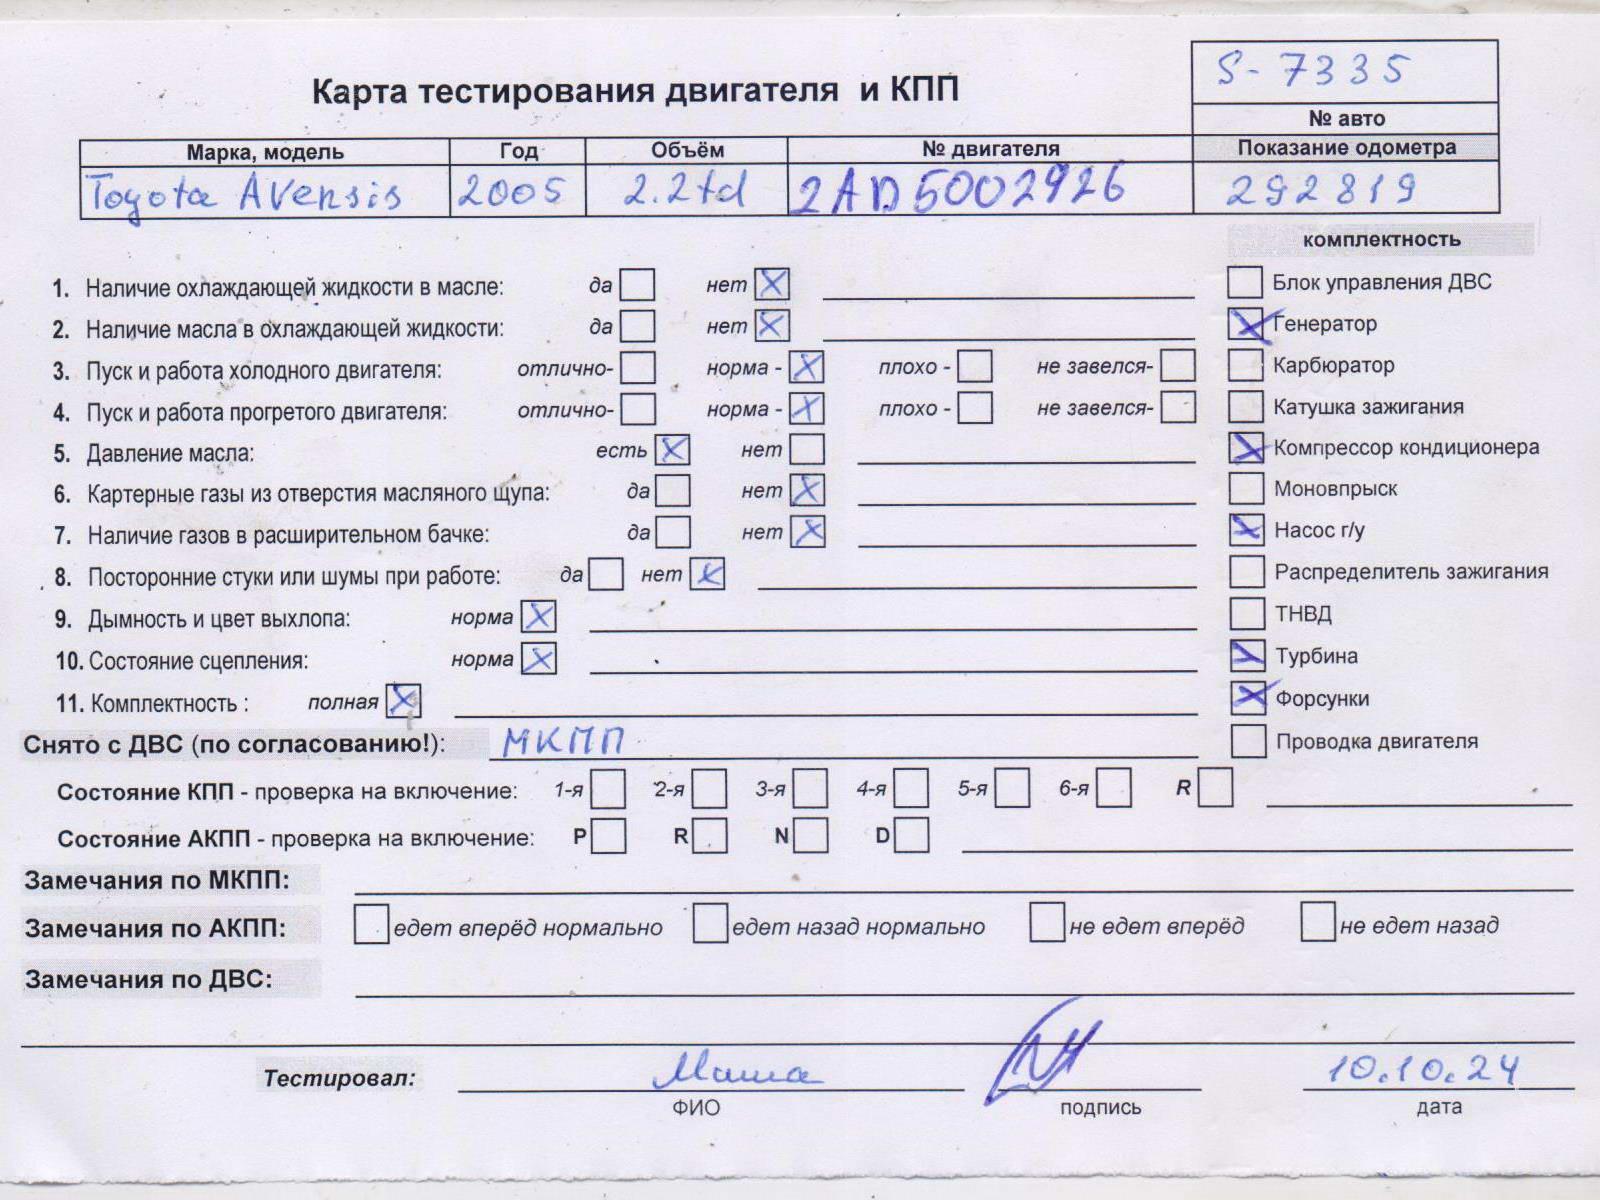 S-7335
Карта тестирования двигателя и КПП
№ авто
Марка, модель Год Объём № двигателя Показание одометра
Toyota Avensis 2005 2.2td 2AD5002926 292819
комплектность
1. Наличие охлаждающей жидкости в масле: да нет X Блок управления ДВС
2. Наличие масла в охлаждающей жидкости: да нет X X Генератор
3. Пуск и работа холодного двигателя: отлично- норма - X плохо - не завелся- Карбюратор
4. Пуск и работа прогретого двигателя: отлично- норма - X плохо - не завелся- Катушка зажигания
5. Давление масла: есть X нет X Компрессор кондиционера
6. Картерные газы из отверстия масляного щупа: да нет X Моновпрыск
7. Наличие газов в расширительном бачке: да нет X X Насос г/у
8. Посторонние стуки или шумы при работе: да нет X Распределитель зажигания
9. Дымность и цвет выхлопа: норма X ТНВД
10. Состояние сцепления: норма X X Турбина
11. Комплектность : полная X X Форсунки
Снято с ДВС (по согласованию!): МКПП Проводка двигателя
Состояние КПП - проверка на включение: 1-я 2-я 3-я 4-я 5-я 6-я R
Состояние АКПП - проверка на включение: P R N D
Замечания по МКПП:
Замечания по АКПП: едет вперёд нормально едет назад нормально не едет вперёд не едет назад
Замечания по ДВС:
Тестировал: Миша 10.10.24
ФИО подпись дата